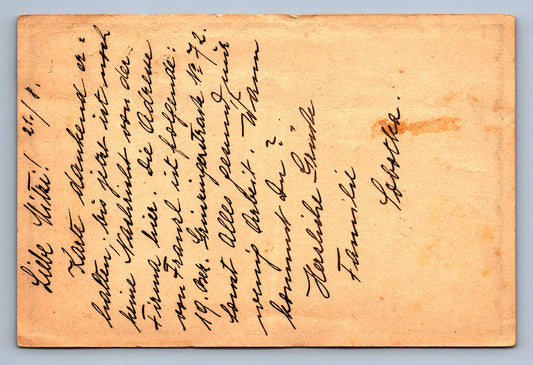 Liebe Mitzi! 21/8.
Karte dankend er-
halten, bis jetzt ist noch
keine Nachricht von der
Firma hier. Die Adresse
von Franzl ist folgende:
19. Bez. Grinzingerstraße No 72.
Sonst Alles gesund, nur
wenig Arbeit. Wann
kommst Du?
Herzliche Grüße
Familie
Sobotka.